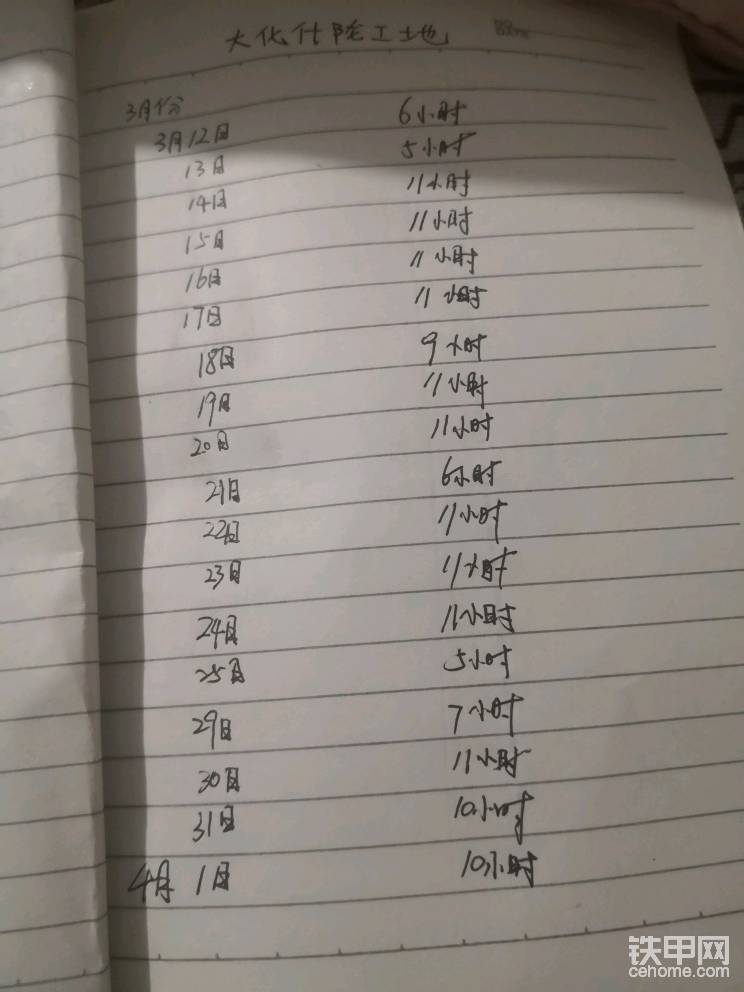 大化什 工地
3月份
3月12日 6小时
13日 5小时
14日 11小时
15日 11小时
16日 11小时
17日 11小时
18日 9小时
19日 11小时
20日 11小时
21日 6小时
22日 11小时
23日 11小时
24日 11小时
25日 5小时
29日 7小时
30日 11小时
31日 10小时
4月1日 10小时
铁甲网
cehome.com